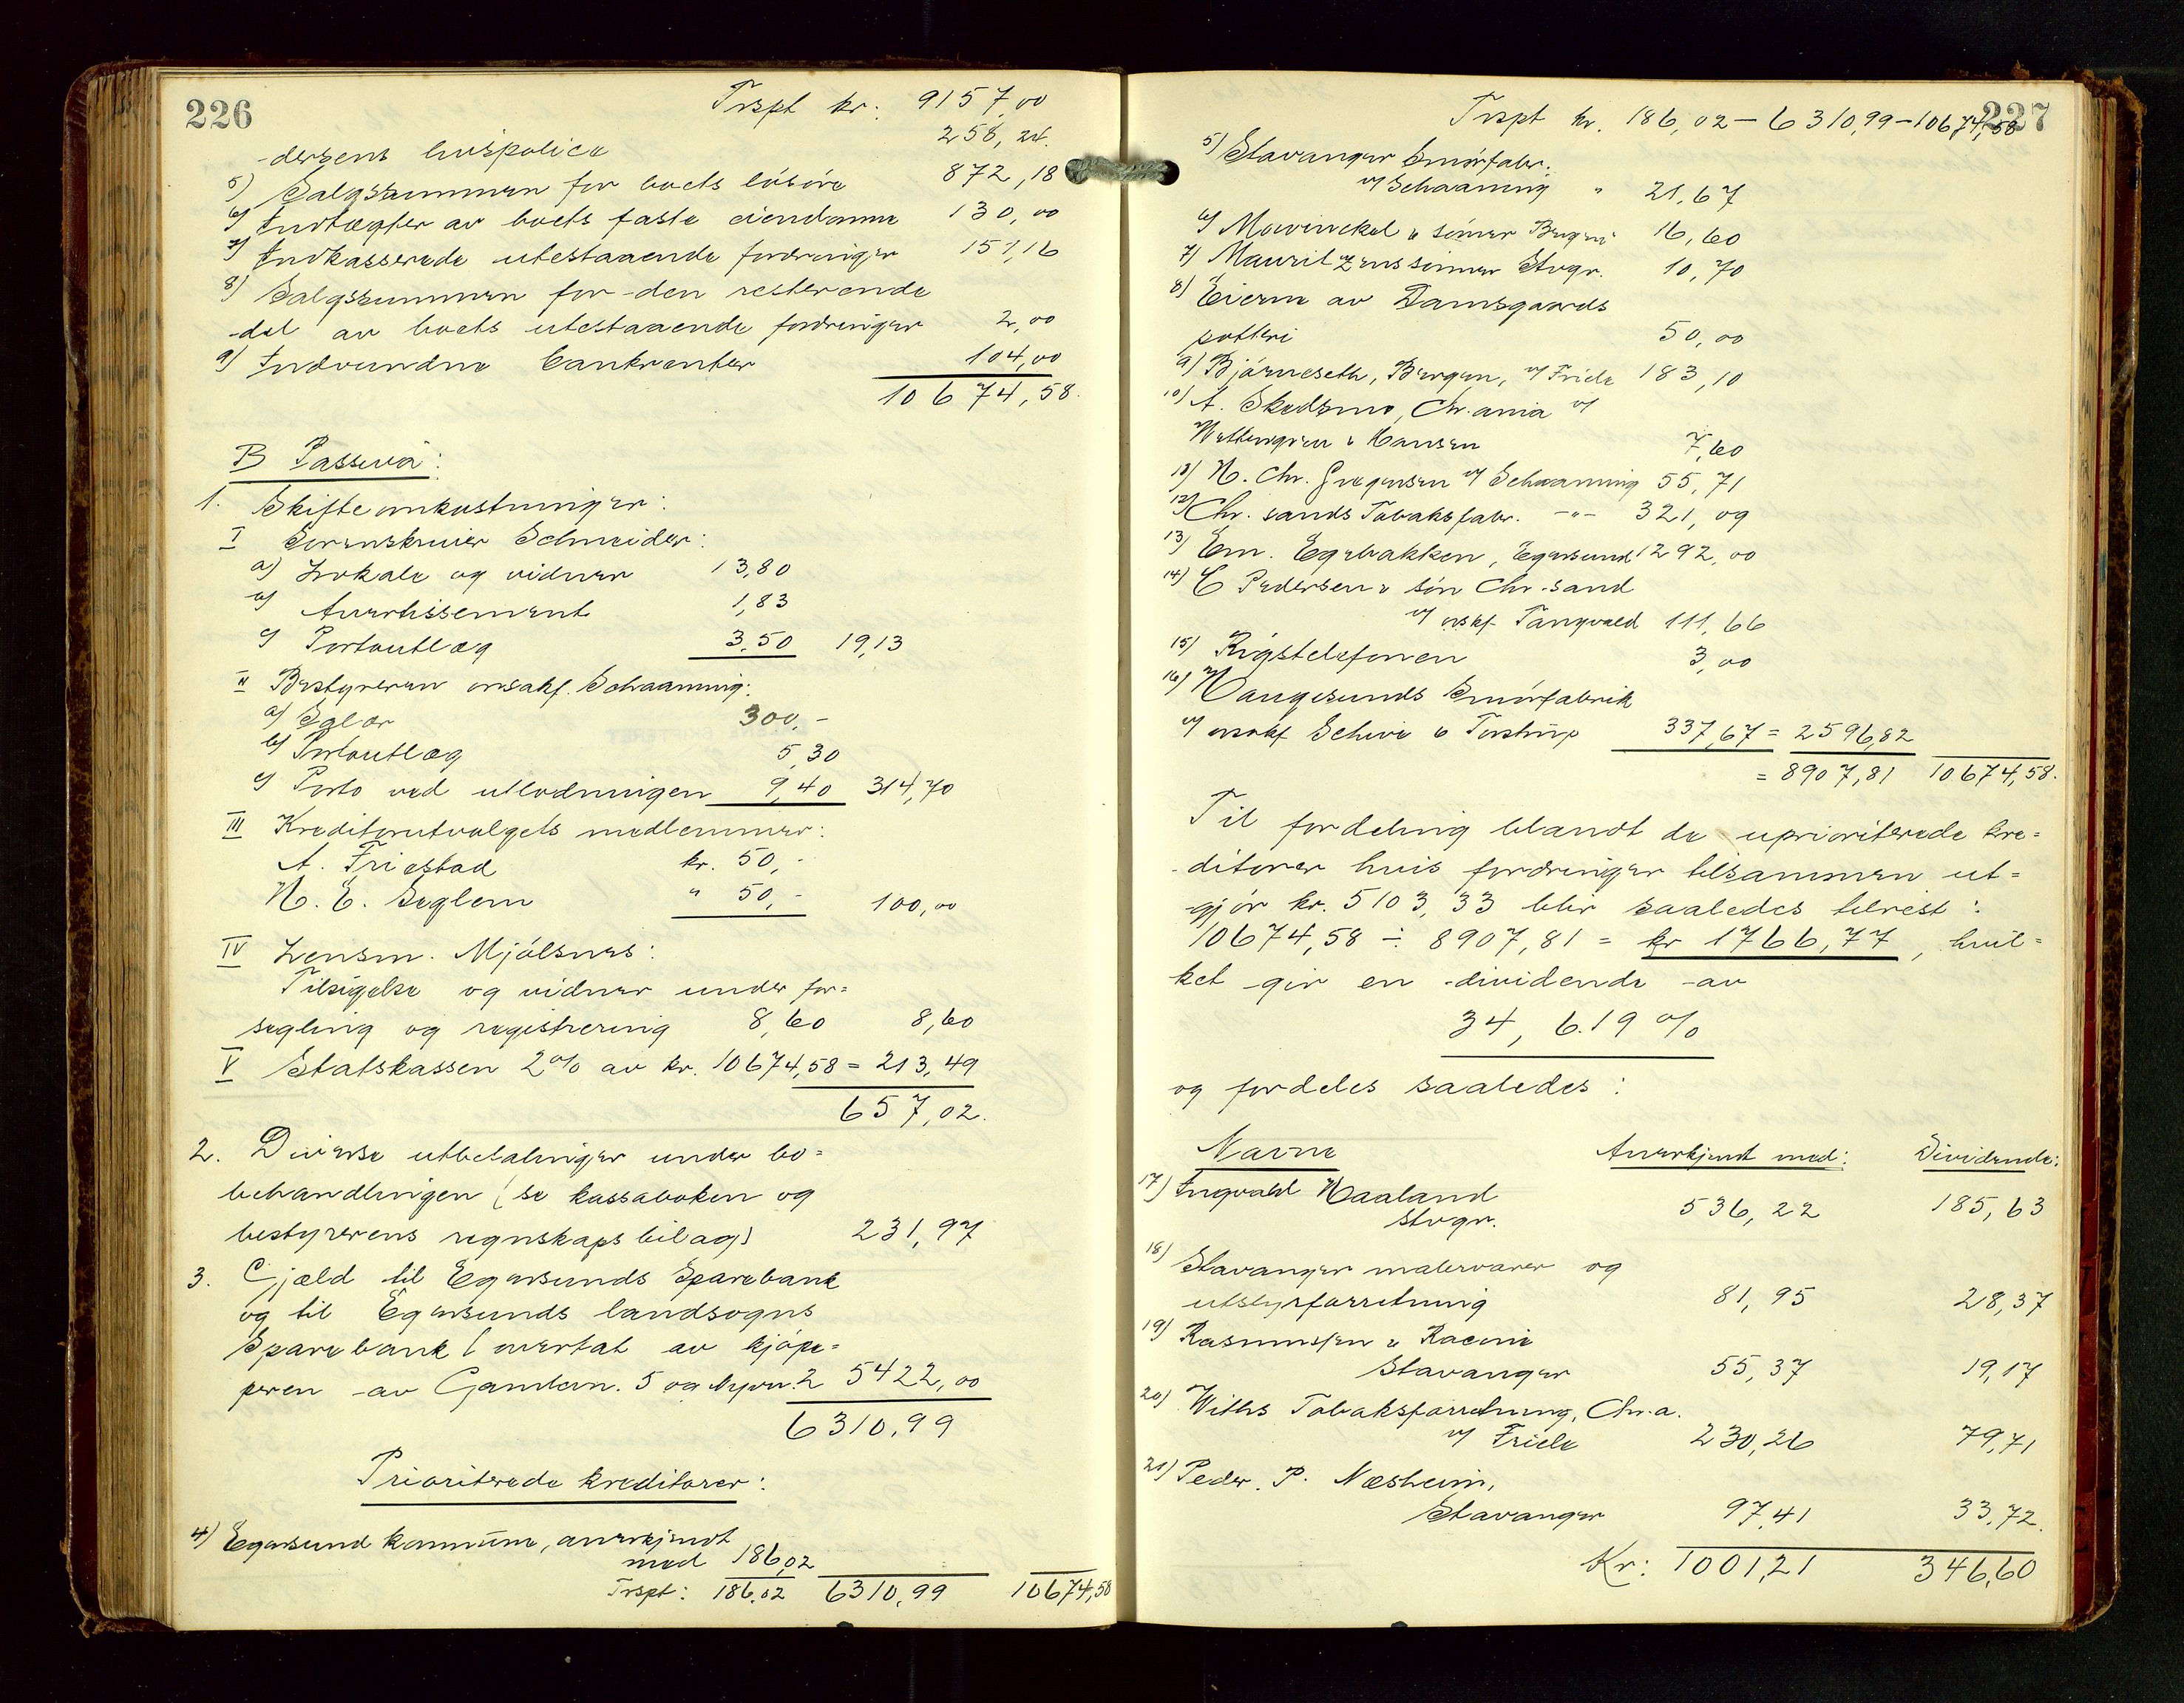 226
Trspt kr. 9157,00
dersens livspolice 258,24.
5) Salgssummen for boets lösöre 872,18
6) Indtægter av boets faste eiendomme 130,00
7) Indkasserede utestaaende fordringer 151,16
8) Salgssummen for den resterende
del av boets utestaaende fordringer 2,00
9) Indvundne bankrenter 104,00
10674,58.
B Passiva:
1. Skifteomkostninger:
I Sorenskriver Schneider:
a) Lokale og vidner 13,80
b) Avertissement 1,83
c) Portoutlæg 3,50 19,13
II Bestyreren orsakf. Schaanning:
a) Salær 300,-
b) Portoutlæg 5,30
c) Porto ved utlodningen 9,40 314,70
III Kreditorutvalgets medlemmer:
A. Friestad kr. 50,-
N. E. Seglem " 50,- 100,00
IV Lensm. Mjölsnes:
Tilsigelse og vidner under for=
segling og registrering 8,60 8,60
V Statskassen 2% av kr. 10674,58 = 213,49
657,02.
2. Diverse utbetalinger under bo=
behandlingen (se kassaboken og
bestyrerens regnskapsbilag) 231,97
3. Gjæld til Egersunds Sparebank
og til Egersunds landsogns
Sparebank (overtat av kjöpe=
peren av Gamlern. 5 og Nyvn. 2 5422,00
6310,99
Prioriterede kreditorer:
4) Egersund kommune, anerkjendt
med 186,02
Trspt: 186,02 6310,99 10674,58
227
Trspt kr. 186,02 - 6310,99 - 10674,58
5) Stavanger Smörfabr.
v/ Schaanning " 21,67
6) Mowinckel & sönner Bergen 16,60
7) Mauritzens sönner Stvgr. 10,70
8) Eierne av Damsgaards
potteri 50,00
9) Björneseth, Bergen, v/ Friele 183,10
10) A. Skedsmo, Chr.ania v/
Wettergren & Hansen 7,60
11) N. Chr. Gregersen v/ Schaanning 55,71
12) Chr.sands Tobaksfabr. -"- 321,09
13) Em. Egebakken, Egersund 1292,00
14) C Pedersen & sön Chr.sand
v/ orskf. Tangvald 111,66
15) Rigstelefonen 3,00
16) Haugesunds Smörfabrik
v/ orsakf Schive & Torstrup 337,67 = 2596,82
= 8907,81 10674,58.
Til fordeling blandt de uprioriterede kre=
ditorer hvis fordringer tilsammen ut=
gjör kr. 5103,33 blir saaledes tilrest:
10674,58 ÷ 8907,81 = kr 1766,77, hvil=
ket gir en dividende av
34, 6.19 %
og fordeles saaledes:
Navne Anerkjendt med: Dividende:
17) Ingvald Haaland
Stvgr. 536,22 185,63
18) Stavanger malervarer og
utstyrforretning 81,95 28,37
19) Rasmussen & Racine
Stavanger 55,37 19,17
20) Withs Tobaksforretning, Chr.a.
v/ Friele 230,26 79,71
21) Peder. P. Næsheim,
Stavanger 97,41 33,72.
Kr: 1001,21 346,60